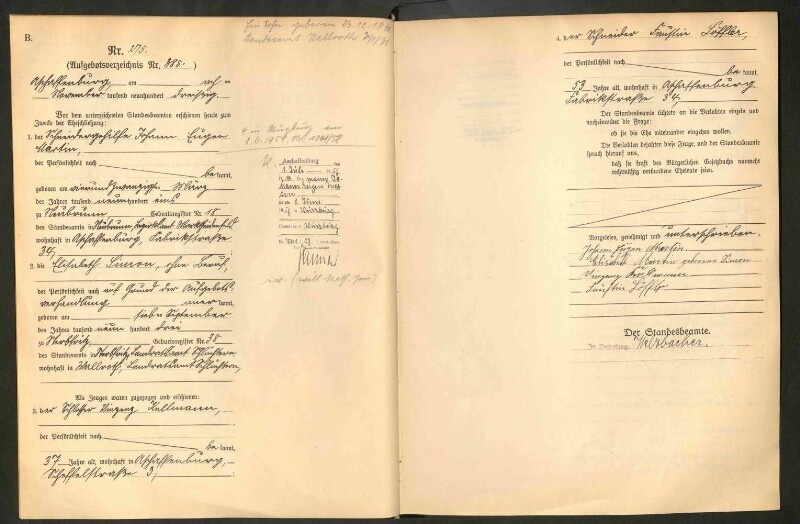 B.
Nr. 275.
(Aufgebotsverzeichnis Nr. 385.)
Aschaffenburg, am acht
November tausend neunhundert dreißig.
Vor dem unterzeichneten Standesbeamten erschienen heute zum
Zwecke der Eheschließung:
1. der Schneidergehilfe Johann Eugen
Martin,
der Persönlichkeit nach
bekannt,
geboren am vierundzwanzigsten März
des Jahres tausend neunhundert eins
zu Neubrunn Geburtsregister Nr. 18
des Standesamts in Neubrunn, Bezirksamt Marktheidenfeld
wohnhaft in Aschaffenburg, Fabrikstraße
34,
2. die Elisabeth Simon, ohne Beruf,
der Persönlichkeit nach auf Grund der Aufgebots-
verhandlung anerkannt,
geboren am September
des Jahres tausend neunhundert drei
zu Sterbfritz, Geburtsregister Nr. 38
des Standesamts in Sterbfritz, Landratsamt Schlüchtern
wohnhaft in Wallroth, Landratsamt Schlüchtern,
Als Zeugen waren zugezogen und erschienen:
3. der Schlosser Vinzenz Kullmann,
der Persönlichkeit nach
bekannt,
37 Jahre alt, wohnhaft in Aschaffenburg,
Scheffelstraße 3,
Ein Sohn geboren 23.12.19
Standesamt Wallroth
in Würzburg am
1.6.1959
Aschaffenburg
1. Juli 1959
Würzburg
4. der Schneider Faustin Löffler,
der Persönlichkeit nach
bekannt,
53 Jahre alt, wohnhaft in Aschaffenburg,
Fabrikstraße 34,
Der Standesbeamte richtete an die Verlobten einzeln und
nacheinander die Frage:
ob sie die Ehe miteinander eingehen wollen.
Die Verlobten bejahten diese Frage, und der Standesbeamte
sprach hierauf aus,
daß sie kraft des Bürgerlichen Gesetzbuchs nunmehr
rechtmäßig verbundene Eheleute seien.
Vorgelesen, genehmigt und unterschrieben.
Johann Eugen Martin
Elisabeth Martin geborene Simon
Vinzenz Kullmann
Faustin Löffler
Der Standesbeamte.
In Vertretung: Welzbacher.